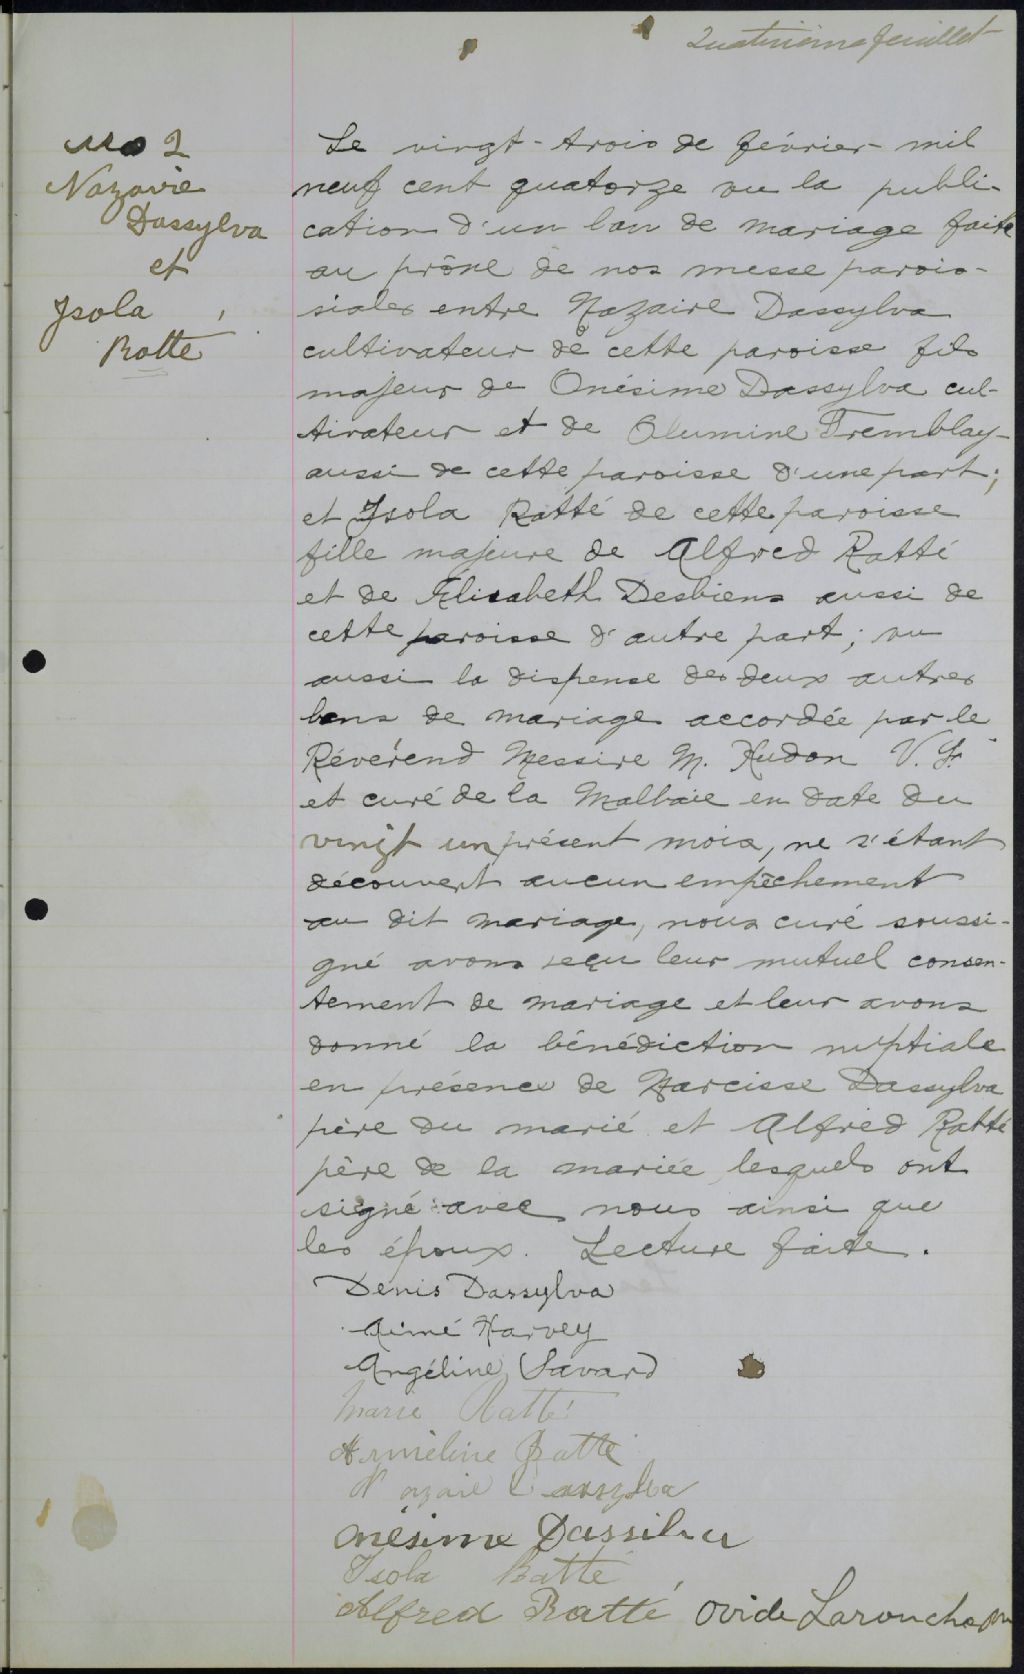 Quatrième feuillet
M 2
Nazaire
Dassylva
et
Isola
Ratté
Le vingt-trois de février mil
neuf cent quatorze vu la publi-
cation d'un ban de mariage faite
au prône de nos messe parois-
siales entre Nazaire Dassylva
cultivateur de cette paroisse fils
majeur de Onésime Dassylva cul-
tivateur et de Olumine Tremblay
aussi de cette paroisse d'une part;
et Isola Ratté de cette paroisse
fille majeure de Alfred Ratté
et de Élisabeth Desbiens aussi de
cette paroisse d'autre part; vu
aussi la dispense des deux autres
bans de mariage accordée par le
Révérend Messire M. Hudon V. F.
et curé de la Malbaie en date du
vingt un présent mois, ne s'étant
découvert aucun empêchement
au dit mariage, nous curé soussi-
gné avons reçu leur mutuel consen-
tement de mariage et leur avons
donné la bénédiction nuptiale
en présence de Narcisse Dassylva
père du marié et Alfred Ratté
père de la mariée lesquels ont
signé avec nous ainsi que
les époux. Lecture faite.
Denis Dassylva
Aimé Harvey
Angéline Savard
Marie Ratté
Arméline Ratté
Nazaire Dassylva
Onésime Dassilva
Isola Ratté
Alfred Ratté Ovide Larouche ptre